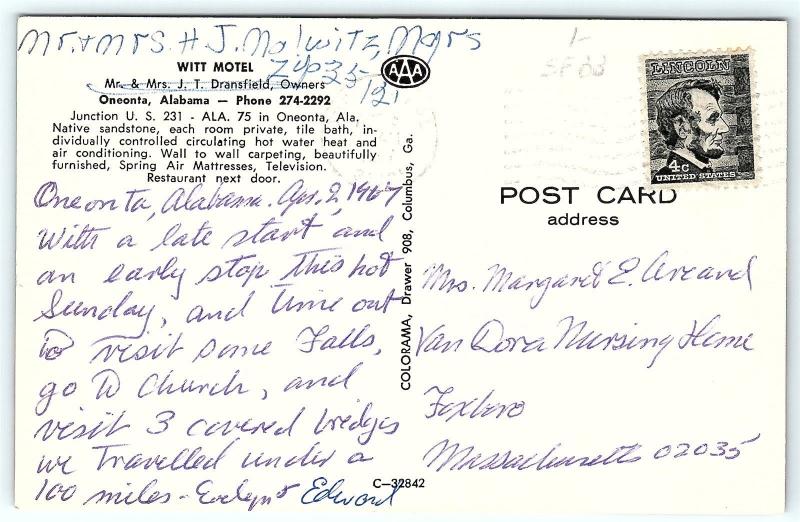 Mr. + Mrs. H J. Malwitz, Mgrs
WITT MOTEL
Zip 35121
Mr. & Mrs. J. T. Dransfield, Owners
Oneonta, Alabama — Phone 274-2292
Junction U. S. 231 - ALA. 75 in Oneonta, Ala.
Native sandstone, each room private, tile bath, in-
dividually controlled circulating hot water heat and
air conditioning. Wall to wall carpeting, beautifully
furnished, Spring Air Mattresses, Television.
Restaurant next door.
Oneonta, Alabama. Apr. 2, 1967
With a late start and
an early stop this hot
Sunday, and time out
to visit some Falls,
go to church, and
visit 3 covered bridges
we travelled under a
100 miles - Evelyn & Edward
COLORAMA, Drawer 908, Columbus, Ga.
C-32842
AAA
LINCOLN
4c
UNITED STATES
POST CARD
address
Mrs. Margaret E.
Van Dora Nursing Home
Foxboro
Massachusetts 02035